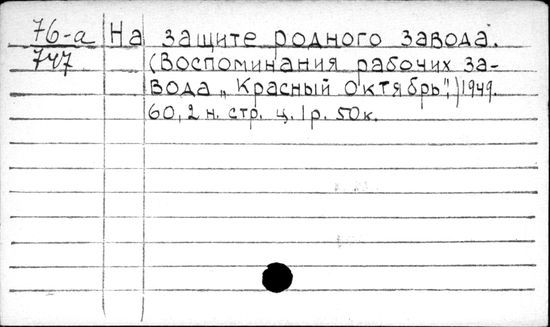 76-а
747
На защите родного завода.
(Воспоминания рабочих за-
вода „Красный Октябрь",) 1949.
60, 2 н. стр. ц. 1 р. 50 к.